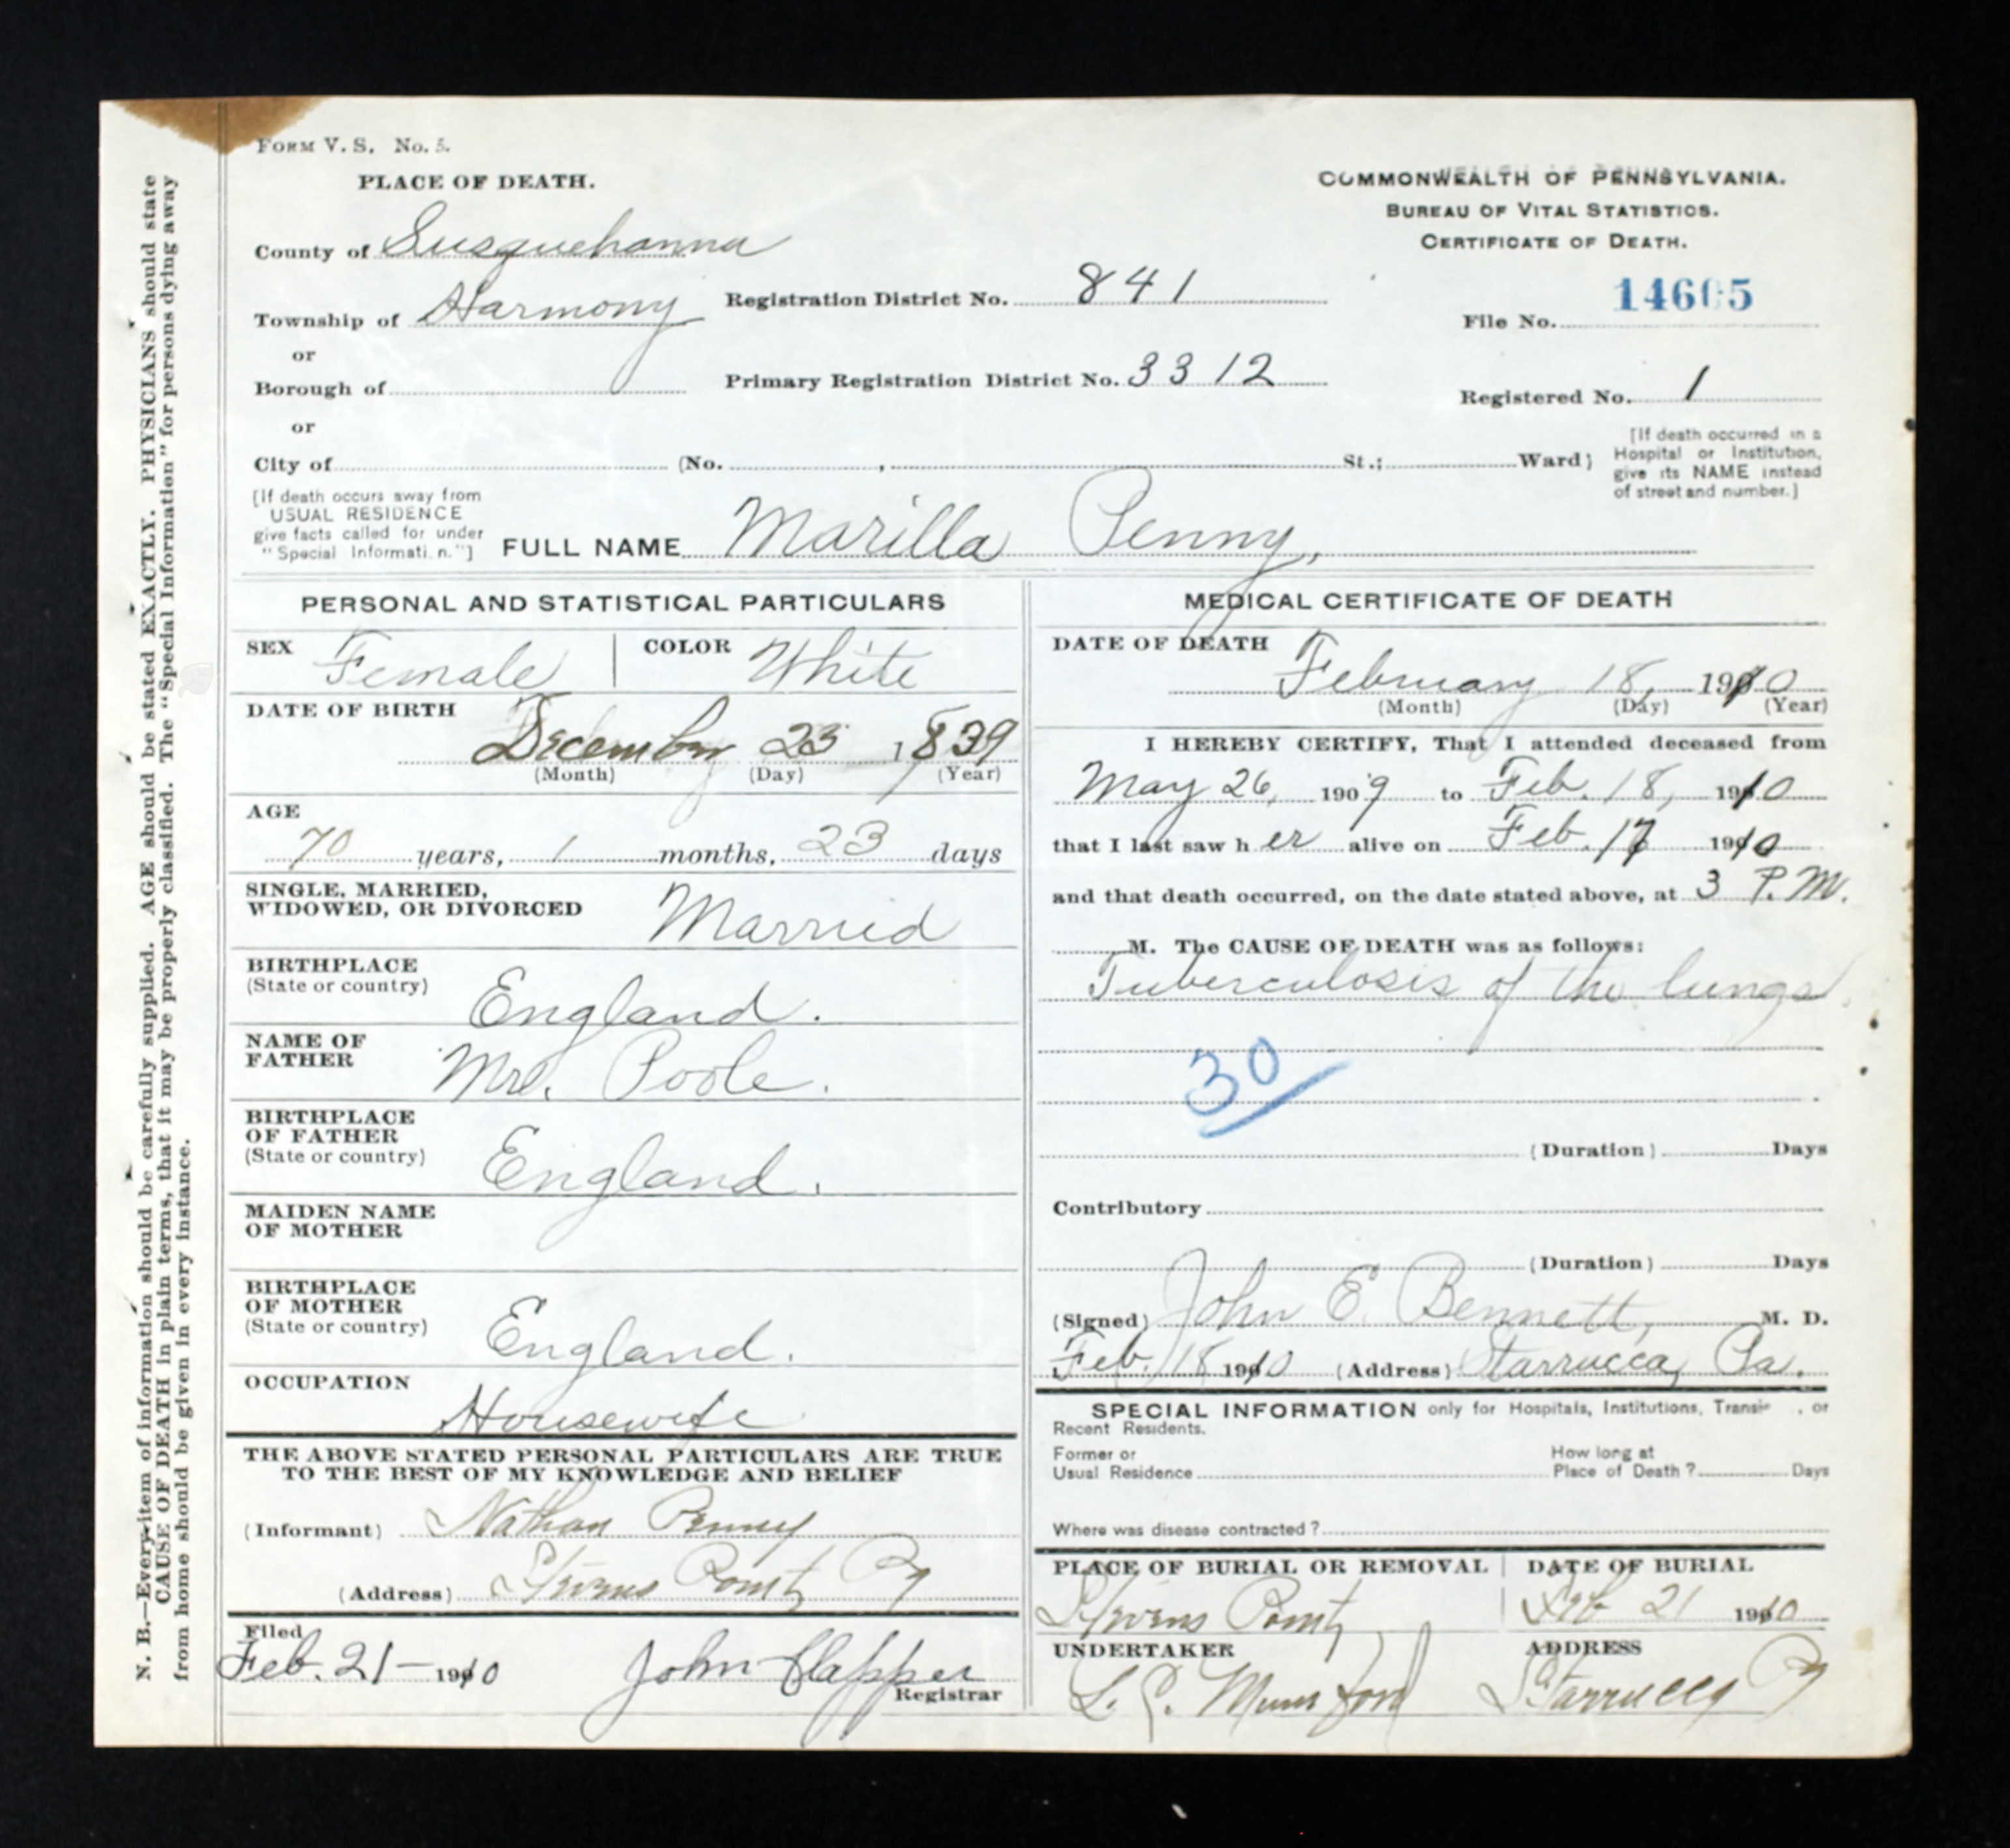 FORM V. S. No. 5.
PLACE OF DEATH.
COMMONWEALTH OF PENNSYLVANIA.
BUREAU OF VITAL STATISTICS.
CERTIFICATE OF DEATH.
County of Susquehanna
Township of Harmony
Registration District No. 841
File No. 14605
or
Borough of
Primary Registration District No. 3312
Registered No. 1
or
City of (No. , St.; Ward)
[If death occurred in a
Hospital or Institution,
give its NAME instead
of street and number.]
[If death occurs away from
USUAL RESIDENCE
give facts called for under
"Special Informati n."]
FULL NAME Marilla Penny,
PERSONAL AND STATISTICAL PARTICULARS
SEX Female COLOR White
DATE OF BIRTH
December 23 1839
(Month) (Day) (Year)
AGE
70 years, 1 months, 23 days
SINGLE, MARRIED,
WIDOWED, OR DIVORCED Married
BIRTHPLACE
(State or country) England.
NAME OF
FATHER Poole.
BIRTHPLACE
OF FATHER
(State or country) England.
MAIDEN NAME
OF MOTHER
BIRTHPLACE
OF MOTHER
(State or country) England.
OCCUPATION
Housewife
THE ABOVE STATED PERSONAL PARTICULARS ARE TRUE
TO THE BEST OF MY KNOWLEDGE AND BELIEF
(Informant) Nathan Penny
(Address) Stevens Point Pa
Filed
Feb. 21 - 1910 John Clapper
Registrar
MEDICAL CERTIFICATE OF DEATH
DATE OF DEATH
February 18, 1910
(Month) (Day) (Year)
I HEREBY CERTIFY, That I attended deceased from
May 26, 1909 to Feb. 18, 1910
that I last saw her alive on Feb. 17 1910
and that death occurred, on the date stated above, at 3 P.M.
M. The CAUSE OF DEATH was as follows:
Tuberculosis of the lungs.
30
(Duration) Days
Contributory
(Duration) Days
(Signed) John E. Bennett, M. D.
Feb. 18 1910 (Address) Starrucca, Pa.
SPECIAL INFORMATION only for Hospitals, Institutions, Transie , or
Recent Residents.
Former or
Usual Residence
How long at
Place of Death? Days
Where was disease contracted?
PLACE OF BURIAL OR REMOVAL DATE OF BURIAL
Stevens Point Feb 21 1910
UNDERTAKER ADDRESS
Mumford Starrucca Pa
N. B.—Every item of information should be carefully supplied. AGE should be stated EXACTLY. PHYSICIANS should state
CAUSE OF DEATH in plain terms, that it may be properly classified. The "Special Information" for persons dying away
from home should be given in every instance.